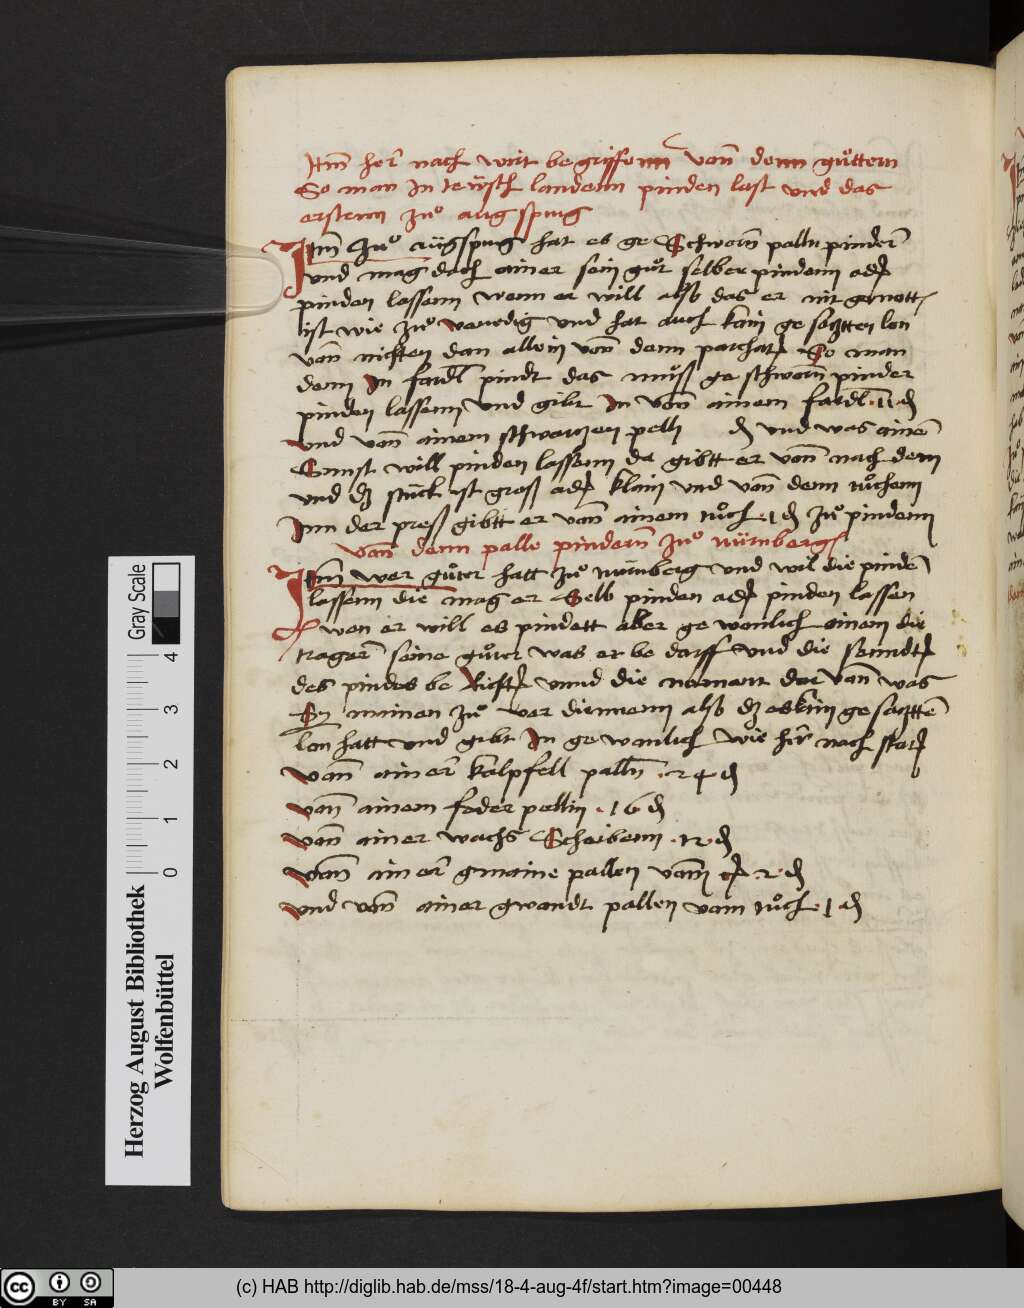 Itm̄ her̄ nach wirt begriffenn von̄ denn gůttern
So man In teŭtsch landenn pinden last vnd das
erstenn zů augspurg
Itm̄ zů augspurg hat es geschworn̄ palln pinder̄
vnd mag doch ainer sein gůt selber pindenn oder
pinden lassenn wenn er will also das er nit genott
ist wie zů venedig vnd hat auch kain gesatzten lon
von̄ nichten dan allein von̄ denn parchat So man
denn In fardl̄ pindt das muͤss geschworn̄ pinder
pinden lassenn vnd gibt In von̄ ainem fardl̄ ₰
vnd von̄ ainem schwarzen pelli ₰ vnd was ainer̄
Sunst will pinden lassenn da gibtt er von̄ nach dem
vnd dz stuck ist gross oder klain vnd von̄ denn tůchenn
Inn der press gibtt er von̄ ainem tůch · 1 ₰ zů pindenn
von̄ denn palle pindern̄ zů nŭrnberg
Itm̄ wer gůter hatt zů nŭrnberg vnd wil die pinden̄
lassenn die mag er Selb pinden oder pinden lassen
wen er will es pindett aber gewonlich einem die
trager̄ seine gůter was er bedarff vnd die
des pindes bericht vnnd die nement dar von̄ was
Sy mainen zů verdiennenn also dz es kain gesatztten̄
lon hatt vnd gibt In gewonlich wie her̄ nach stat
von̄ ainer̄ kalpfell palln̄ · 24 ₰
von ainem feder pellin · 16 ₰
von̄ ainer wachs Scheibenn · 12 · ₰
von̄ ainer̄ gmaine pallen von̄ · 2 · ₰
vnd von̄ ainer gwandt pallen vom tůch · 1 ₰
Gray Scale
0 1 2 3 4
Herzog August Bibliothek
Wolfenbüttel
cc BY SA
(c) HAB http://diglib.hab.de/mss/18-4-aug-4f/start.htm?image=00448